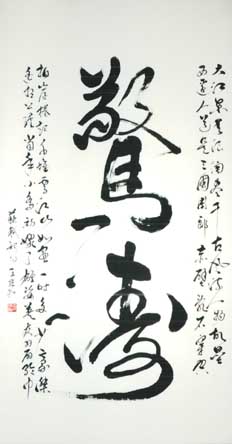 大江東去浪淘盡千古風流人物故壘
西邊人道是三國周郎赤壁亂石穿空
驚濤
拍岸捲起千堆雪江山如畫一時多少豪傑
遙想公瑾當年小喬初嫁了雄姿英發羽扇綸巾
蘇軾